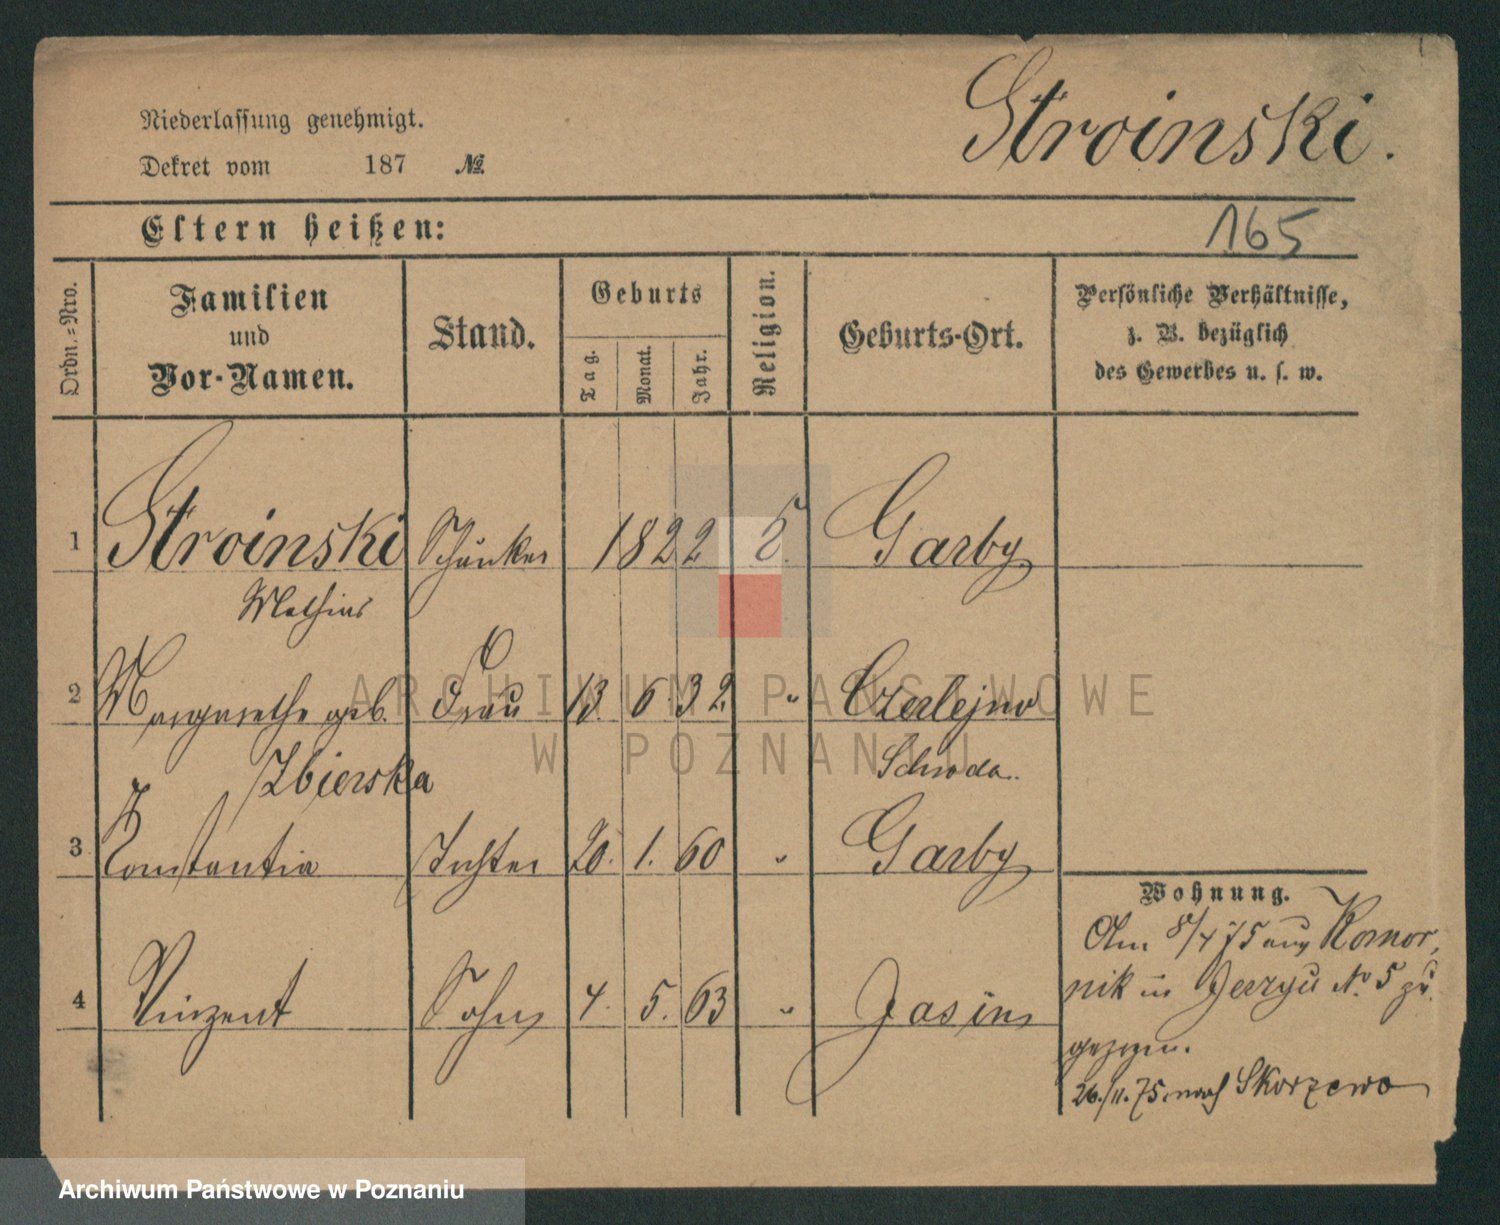 Stroinski.
Niederlassung genehmigt.
Dekret vom 187 №
Eltern heißen:
165
Ordn.-Nro.
Familien und Vor-Namen.
Stand.
Geburts
Tag.
Monat.
Jahr.
Religion.
Geburts-Ort.
Persönliche Verhältnisse,
z. B. bezüglich
des Gewerbes u. s. w.
1 Stroinski Schänker 1822 Garby
Mathias
2 Margarethe geb. Frau 13. 6 32 " Czerlejno
Zbierska Schroda.
3 Konstantia Tochter 20. 1. 60 " Garby
4 Vinzent Sohn 4. 5. 63 " Jasin
Wohnung.
Am 8/4 75 aus Komor,
nik in Jerzyce No 5 zu
gezogen.
26./11. 75 nach Skorzewo
ARCHIWUM PAŃSTWOWE
W POZNANIU
Archiwum Państwowe w Poznaniu